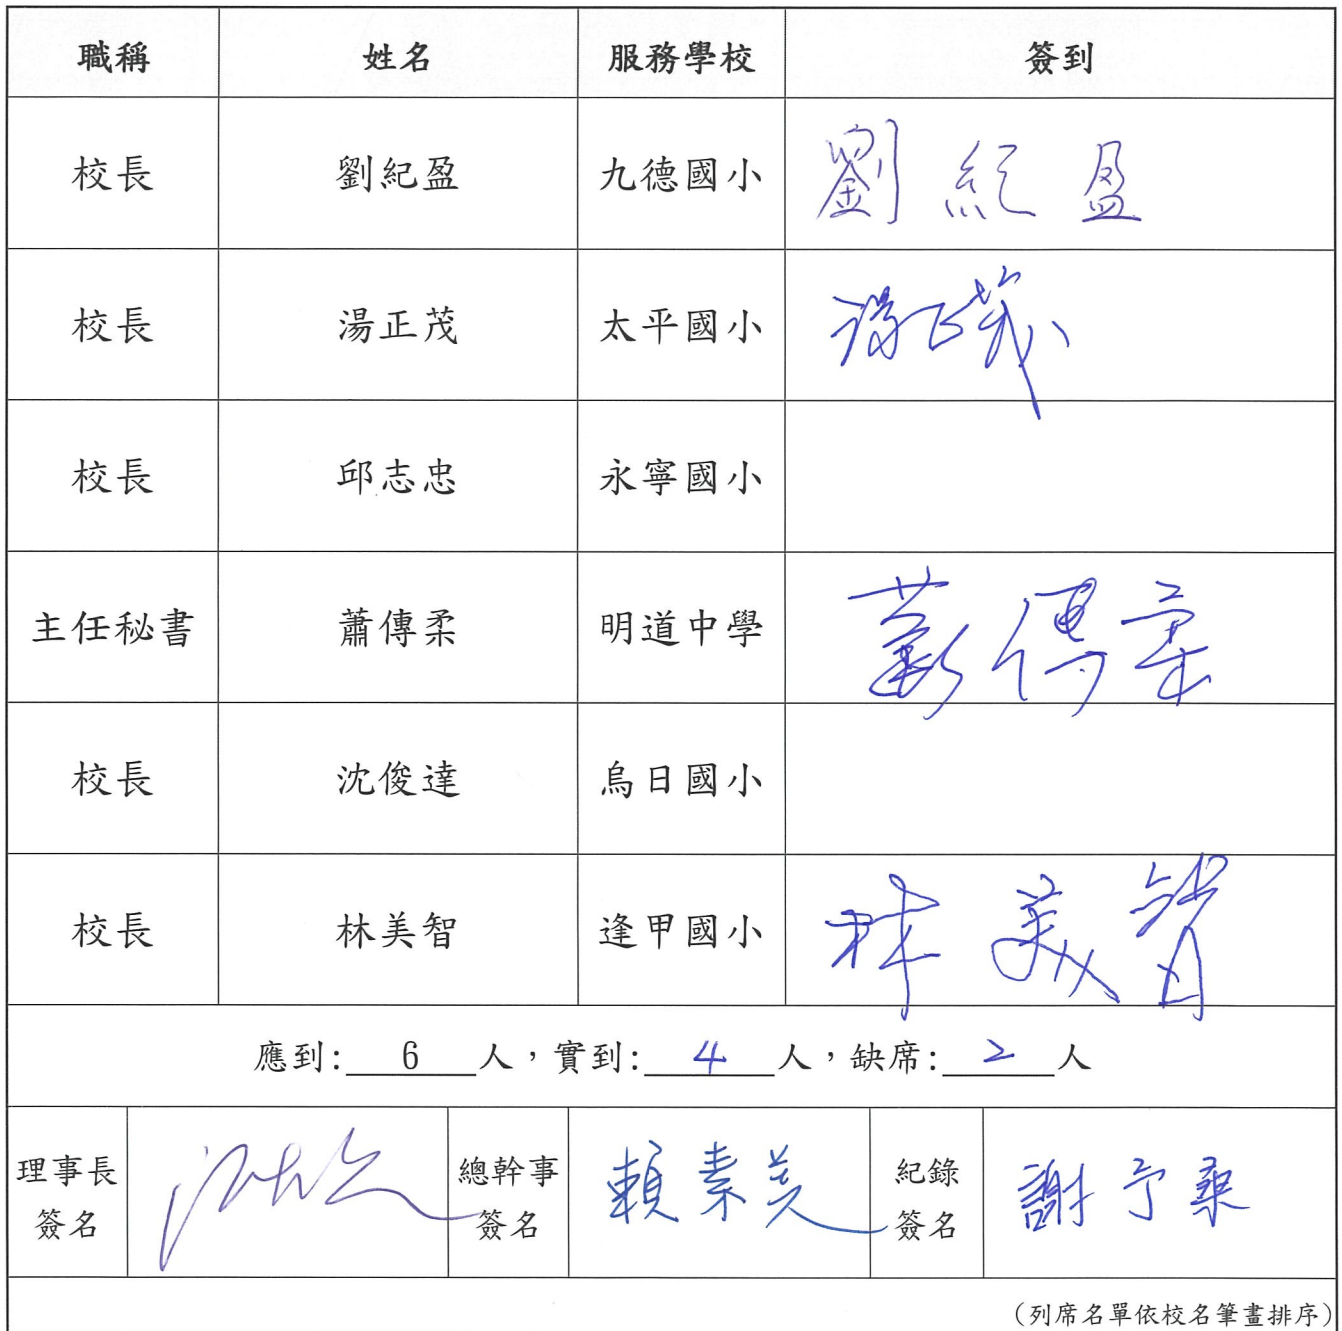 職稱 姓名 服務學校 簽到
校長 劉紀盈 九德國小 劉紀盈
校長 湯正茂 太平國小 湯正茂
校長 邱志忠 永寧國小
主任秘書 蕭傳柔 明道中學 蕭傳柔
校長 沈俊達 烏日國小
校長 林美智 逢甲國小 林美智
應到: 6 人，實到: 4 人，缺席: 2 人
理事長 簽名
總幹事 簽名 賴素美
紀錄 簽名 謝予
(列席名單依校名筆畫排序)